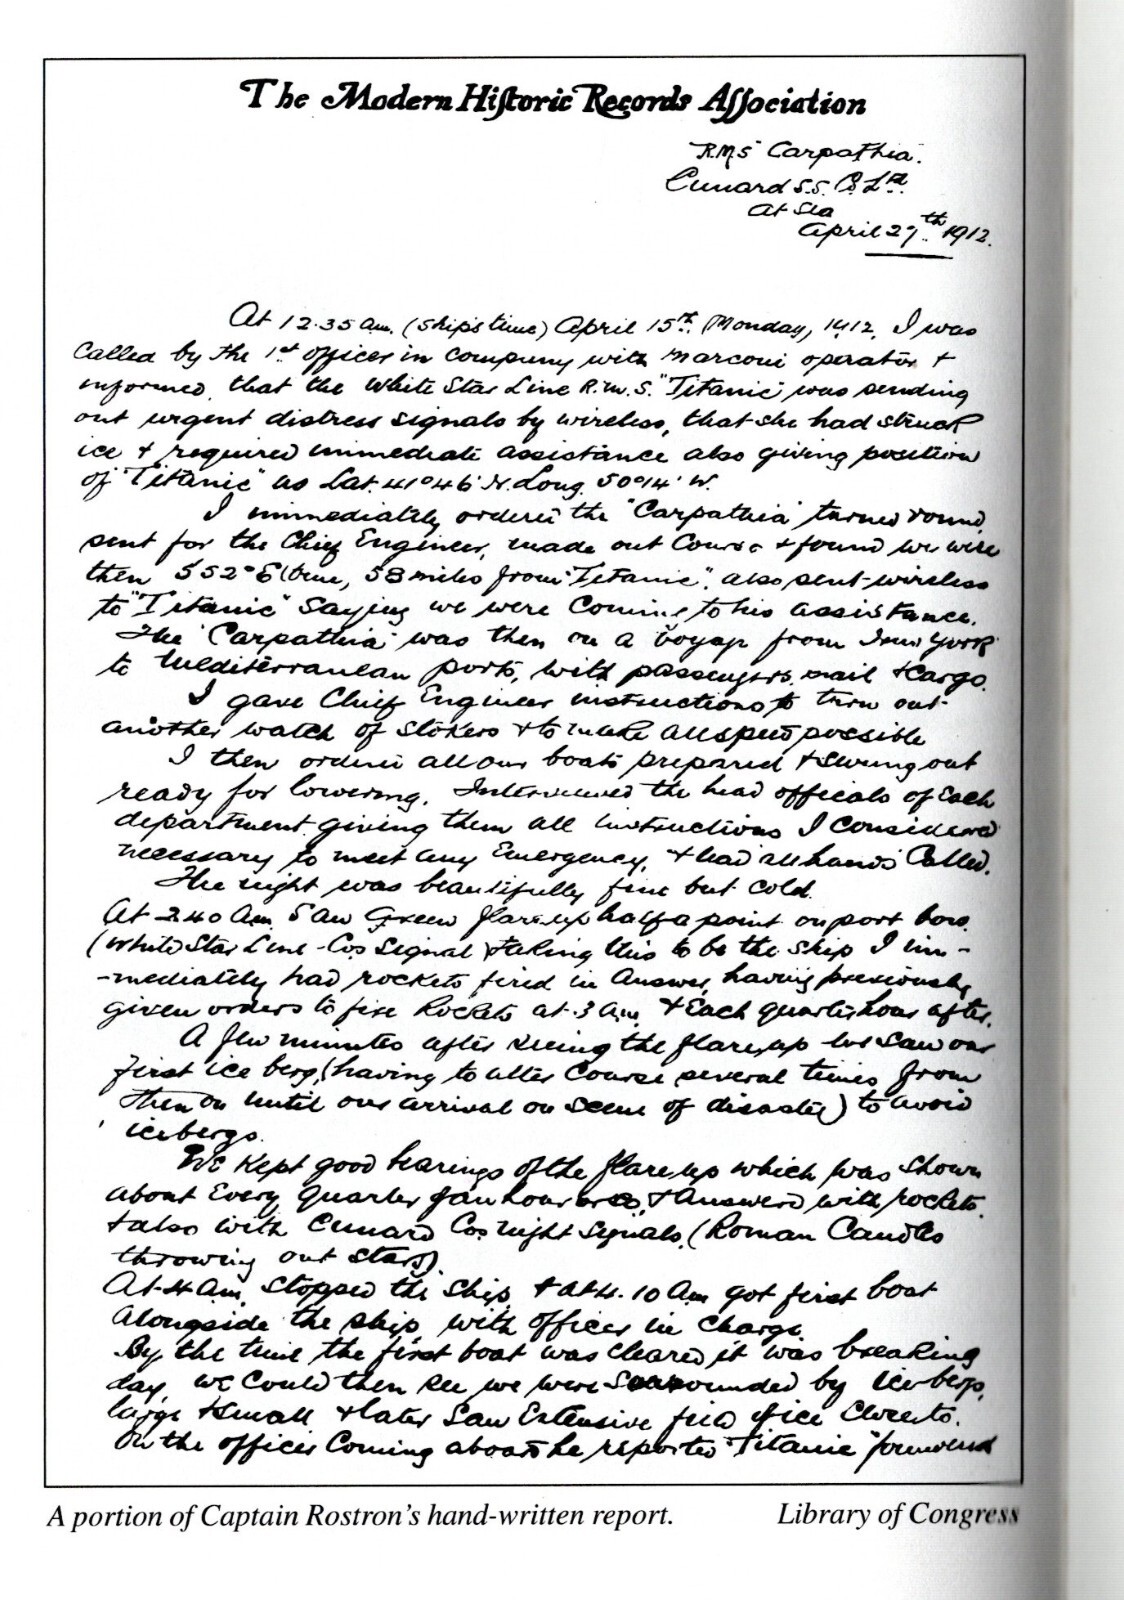 The Modern Historic Records Association
R.M.S "Carpathia".
Cunard S.S. Co Ltd.
At Sea
April 27th. 1912.
At 12.35 am. (Ship's time) April 15th. (Monday, 1912, I was
called by the 1st officer in company with Marconi operator +
informed, that the White Star Line R.M.S. "Titanic" was sending
out urgent distress signals by wireless, that she had struck
ice + required immediate assistance also giving position
of "Titanic" as Lat. 41°46' N. Long. 50°14' W.
I immediately ordered the "Carpathia" turned round,
sent for the Chief Engineer, made out Course + found we were
then S52°E (true, 58 miles from "Titanic". also sent wireless
to "Titanic" saying we were Coming to his assistance.
The "Carpathia" was then on a voyage from New York
to Mediterranean ports, with passengers, mail + Cargo.
I gave Chief Engineer instructions to turn out
another watch of Stokers + to make all speed possible
I then ordered all our boats prepared + swung out
ready for lowering. Interviewed the head officals of Each
department giving them all instructions I considered
necessary to meet any Emergency, + had "all hands" Called.
The night was beautifully fine but cold.
At 2.40 Am. Saw Green flare up half a point on port bow.
(White Star Line - Cos Signal) taking this to be the ship I im-
-mediately had rockets fired in Answer, having previously
given orders to fire Rockets at 3 am. + Each quarter hour after.
A few minutes after seeing the flare up we Saw our
first ice berg, (having to alter Course several times from
then on until our arrival on scene of disaster) to avoid
icebergs.
We kept good bearings of the flare up which was shown
about Every quarter of an hour + Answered with rockets.
+ also with Cunard Cos night Signals. (Roman Candles
throwing out stars).
At 4 Am. Stopped the Ship, + at 4.10 Am got first boat
alongside the ship, with officer in charge.
By the time the first boat was cleared it was breaking
day, we could then see we were surrounded by ice-bergs,
large + small + later Saw Extensive field of ice Close to.
On the officer Coming aboard he reported "Titanic" foundered
A portion of Captain Rostron's hand-written report.
Library of Congress